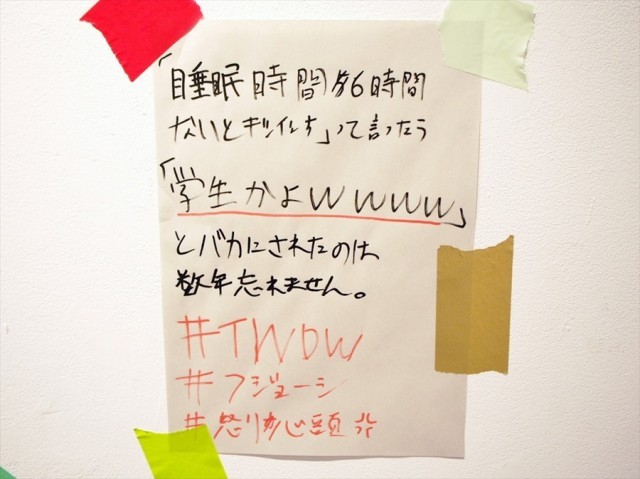 「睡眠時間が6時間
ないとキツイんす」って言ったら
「学生かよwwwww」
とバカにされたのは
数年忘れません。
#TWDW
#フジョーシ
#怒り心頭